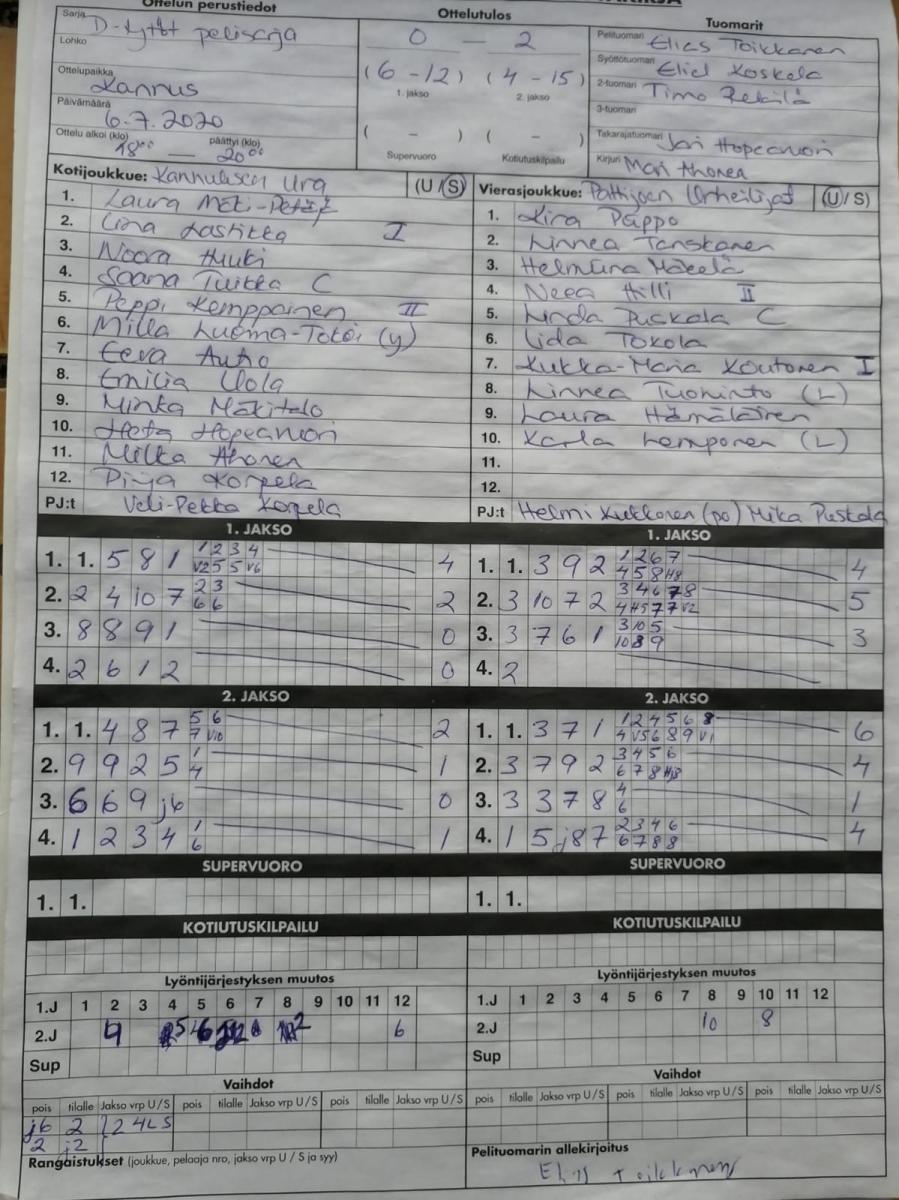 Ottelun perustiedot
Sarja D-tytöt pelisarja
Lohko
Ottelupaikka Kannus
Päivämäärä 6.7.2020
Ottelu alkoi (klo) 18⁰⁰ — päättyi (klo) 20⁰⁰
Ottelutulos
0 - 2
(6 - 12) (4 - 15)
1. jakso 2. jakso
( - ) ( - )
Supervuoro Kotiutuskilpailu
Tuomarit
Pelituomari Elias Toikkanen
Syöttötuomari Eliel Koskela
2-tuomari Timo Rekilä
3-tuomari
Takarajatuomari Jari Hopeavuori
Kirjuri Mari Ahonen
Kotijoukkue: Kannuksen Ura (U/S)
1. Laura Mäki-Petäjä
2. Lastikka I
3. Noora Huuki
4. Saana Tuikka C
5. Peppi Kemppainen II
6. Milla Luoma-Tokoi (y)
7. Eeva Autio
8. Emilia Ulola
9. Minka Mäkitalo
10. Heta Hopeavuori
11. Milka Ahonen
12. Pinja Korpela
PJ:t Veli-Pekka Korpela
Vierasjoukkue: Pattijoen Urheilijat (U/S)
1. Kira Pappo
2. Linnea Tanskanen
3. Helmiina Mäkelä
4. Neea Hilli II
5. Linda Puskala C
6. Iida Tokola
7. Kukka-Maria Koutonen I
8. Linnea Tuohinto (L)
9. Laura Hämäläinen
10. Karla Lemponen (L)
11.
12.
PJ:t Helmi Kukkonen (po) Mika Puskala
1. JAKSO
1. 1. 5 8 1 1 2 3 4 4
V2 5 5 V6
2. 2 4 10 7 2 3 2
6 6
3. 8 8 9 1 0
4. 2 6 12 0
1. JAKSO
1. 1. 3 9 2 1 2 6 7 4
4 5 8 H8
2. 3 10 7 2 3 4 6 7 8 5
4 H5 7 7 V2
3. 3 7 6 1 3 10 5 3
10 8 9
4. 2
2. JAKSO
1. 1. 4 8 7 5 6 2
7 V10
2. 9 9 2 5 1 1
4
3. 6 6 9 j6 0
4. 1 2 3 4 1 1
6
2. JAKSO
1. 1. 3 7 1 1 2 4 5 6 8 6
4 V5 6 8 9 V1
2. 3 7 9 2 3 4 5 6 4
6 7 8 Hj8
3. 3 3 7 8 4 1
6
4. 1 5 j8 7 2 3 4 6 4
6 7 8 8
SUPERVUORO
1. 1.
SUPERVUORO
1. 1.
KOTIUTUSKILPAILU
KOTIUTUSKILPAILU
Lyöntijärjestyksen muutos
1.J 1 2 3 4 5 6 7 8 9 10 11 12
2.J 9 6
Sup
Lyöntijärjestyksen muutos
1.J 1 2 3 4 5 6 7 8 9 10 11 12
2.J 10 8
Sup
Vaihdot
pois tilalle Jakso vrp U/S pois tilalle Jakso vrp U/S pois tilalle Jakso vrp U/S
j6 2 2 4L S
2 j2
Vaihdot
pois tilalle Jakso vrp U/S pois tilalle Jakso vrp U/S pois tilalle Jakso vrp U/S
Rangaistukset (joukkue, pelaaja nro, jakso vrp U / S ja syy)
Pelituomarin allekirjoitus
Elias Toikkanen